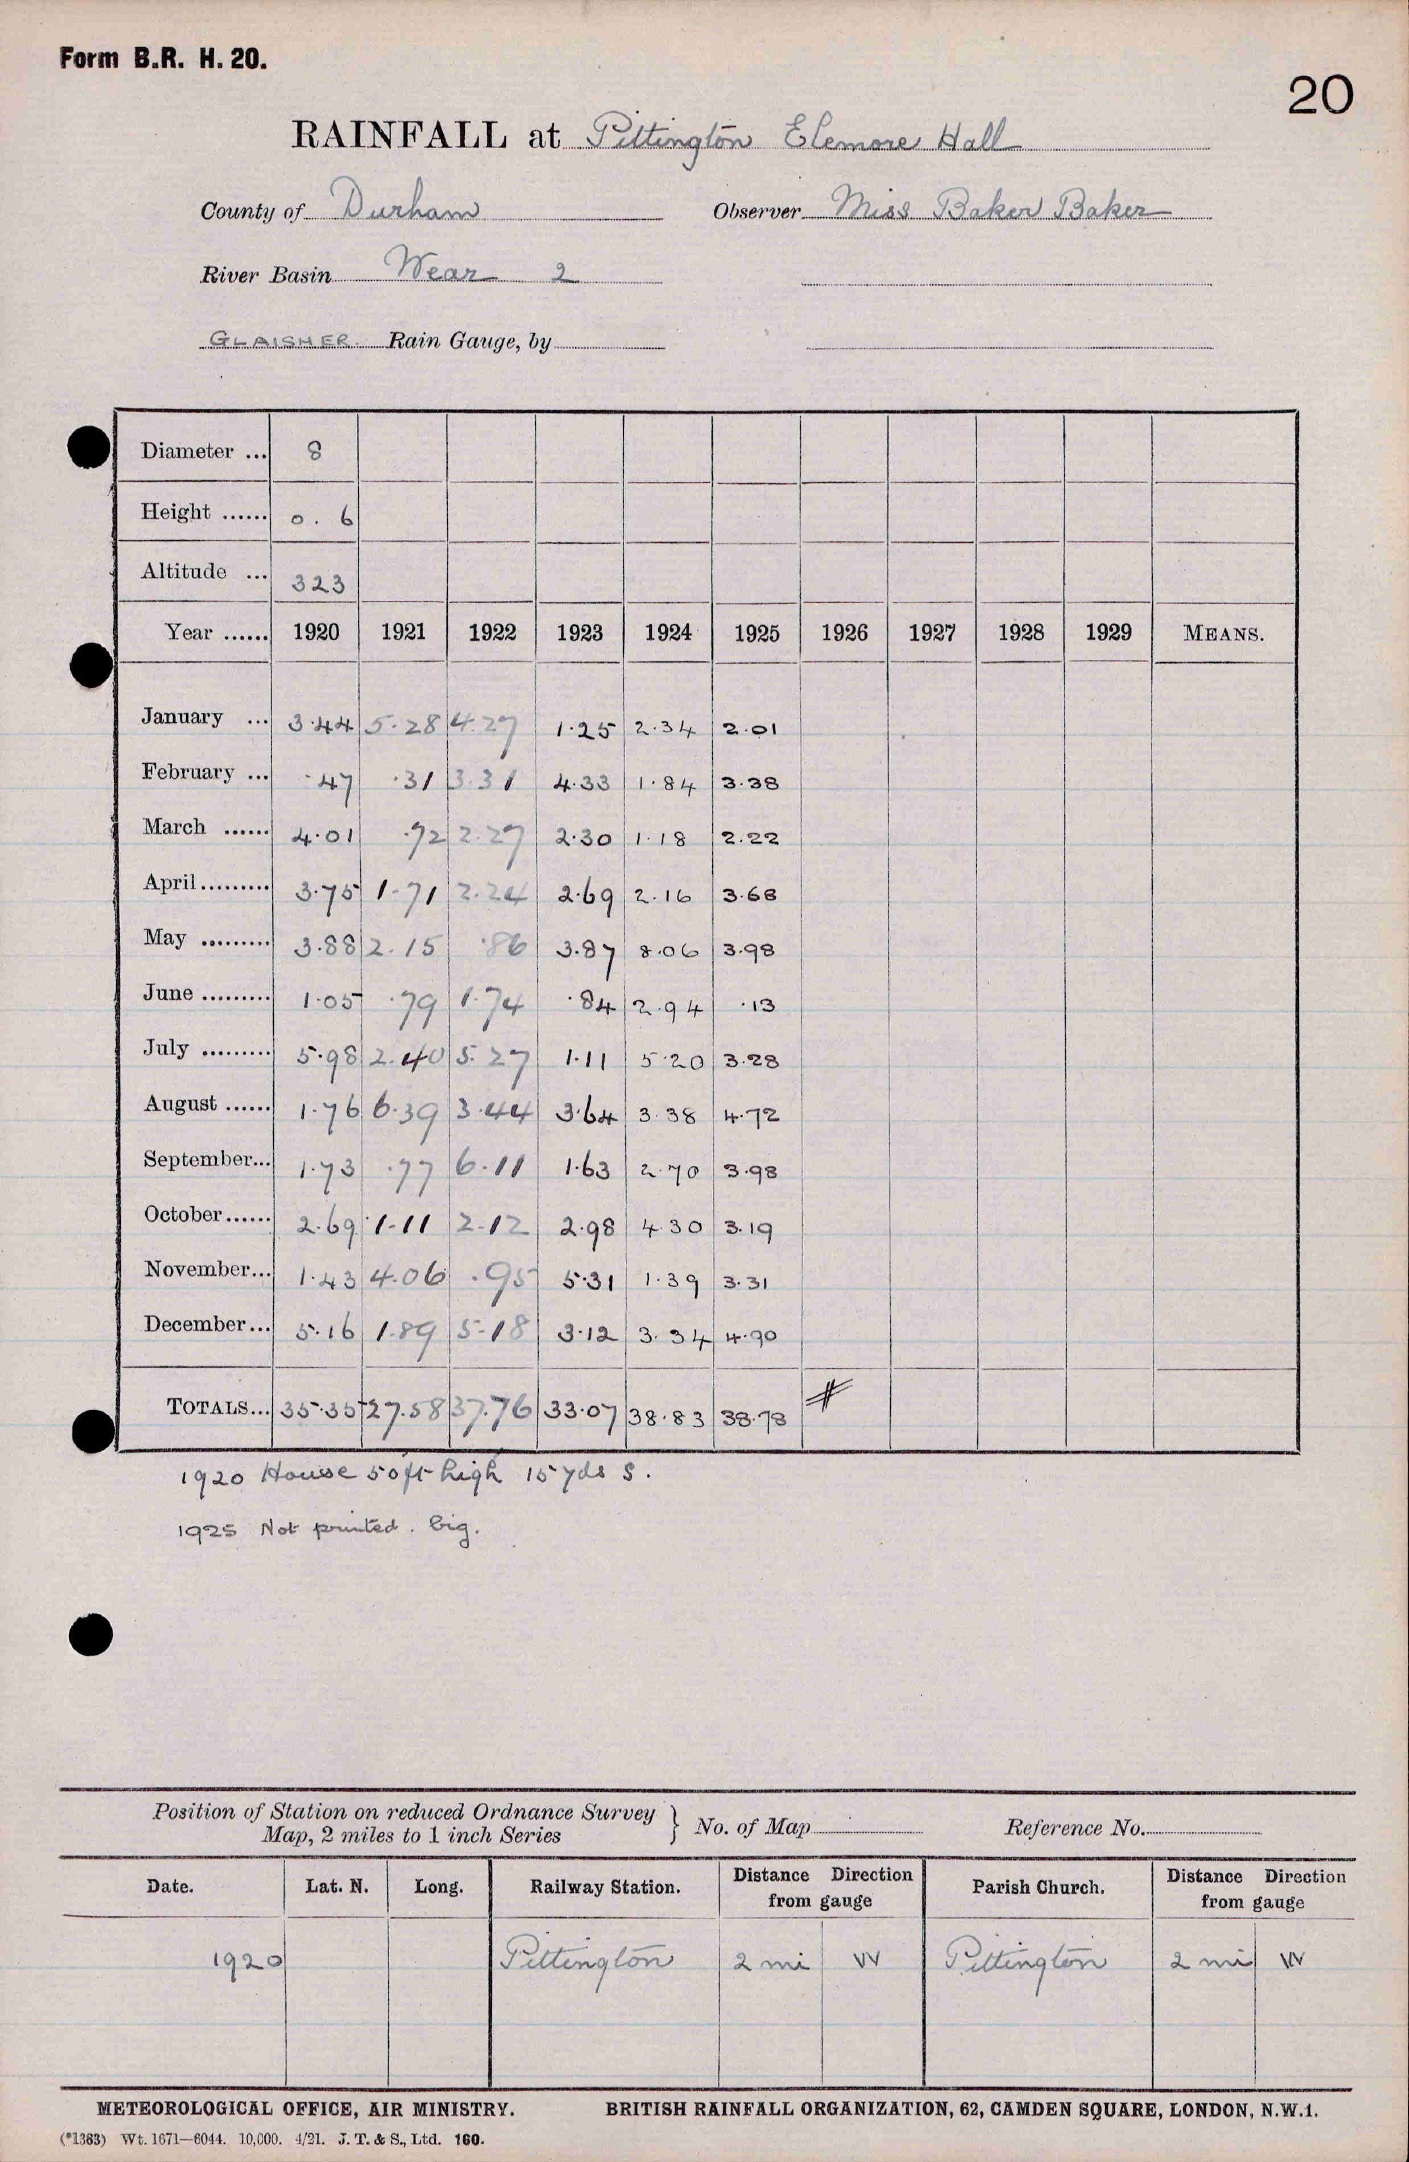 Form B.R. H. 20.
20
RAINFALL at Pittington Elemore Hall
County of Durham Observer Miss Baker Baker
River Basin Wear 2
GLAISHER Rain Gauge, by
Diameter ... 8
Height ...... 0.6
Altitude ... 323
Year ...... 1920 1921 1922 1923 1924 1925 1926 1927 1928 1929 MEANS.
January ... 3.44 5.28 4.27 1.25 2.34 2.01
February ... .47 .31 3.31 4.33 1.84 3.38
March ...... 4.01 .72 2.27 2.30 1.18 2.22
April ......... 3.75 1.71 2.24 2.69 2.16 3.68
May ......... 3.88 2.15 .86 3.87 8.06 3.98
June ......... 1.05 .79 1.74 .84 2.94 .13
July ......... 5.98 2.40 5.27 1.11 5.20 3.28
August ...... 1.76 6.39 3.44 3.64 3.38 4.72
September... 1.73 .77 6.11 1.63 2.70 3.98
October...... 2.69 1.11 2.12 2.98 4.30 3.19
November... 1.43 4.06 .95 5.31 1.39 3.31
December... 5.16 1.89 5.18 3.12 3.34 4.90
TOTALS... 35.35 27.58 37.76 33.07 38.83 38.78 #
1920 House 50ft high 15 yds S.
1925 Not printed. big.
Position of Station on reduced Ordnance Survey
Map, 2 miles to 1 inch Series } No. of Map Reference No.
Date. Lat. N. Long. Railway Station. Distance Direction from gauge Parish Church. Distance Direction from gauge
1920 Pittington 2 mi W Pittington 2 mi W
METEOROLOGICAL OFFICE, AIR MINISTRY. BRITISH RAINFALL ORGANIZATION, 62, CAMDEN SQUARE, LONDON, N.W.1.
(*1383) Wt. 1671—6044. 10,000. 4/21. J. T. & S., Ltd. 160.